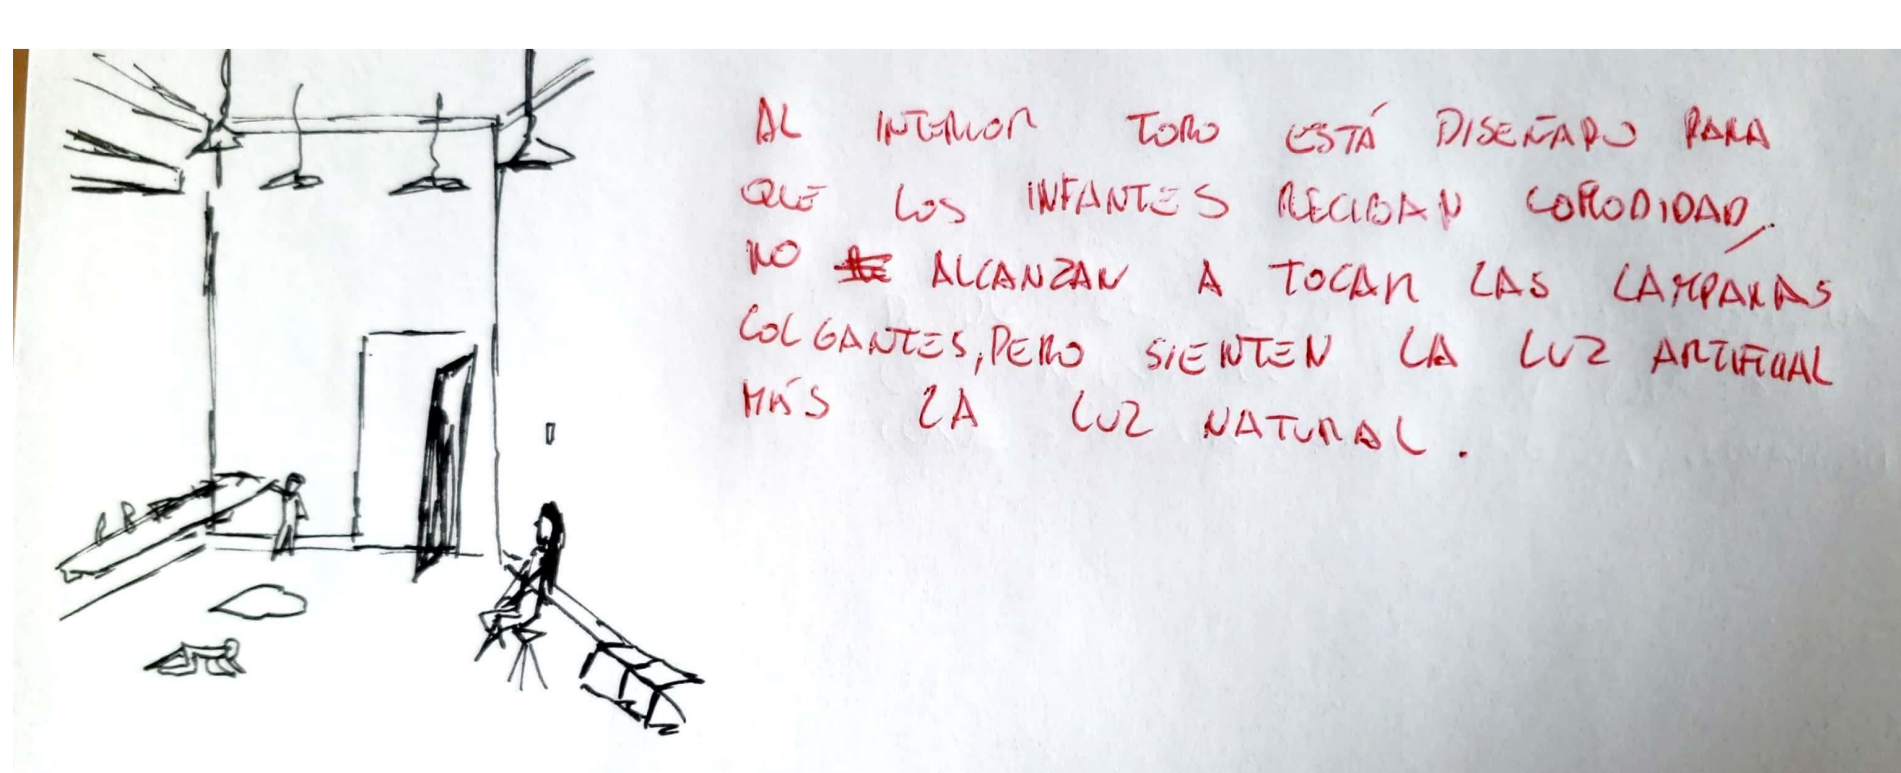 AL INTERIOR TODO ESTÁ DISEÑADO PARA
QUE LOS INFANTES RECIBAN COMODIDAD,
NO ALCANZAN A TOCAR LAS LAMPARAS
COLGANTES, PERO SIENTEN LA LUZ ARTIFICIAL
MÁS LA LUZ NATURAL.